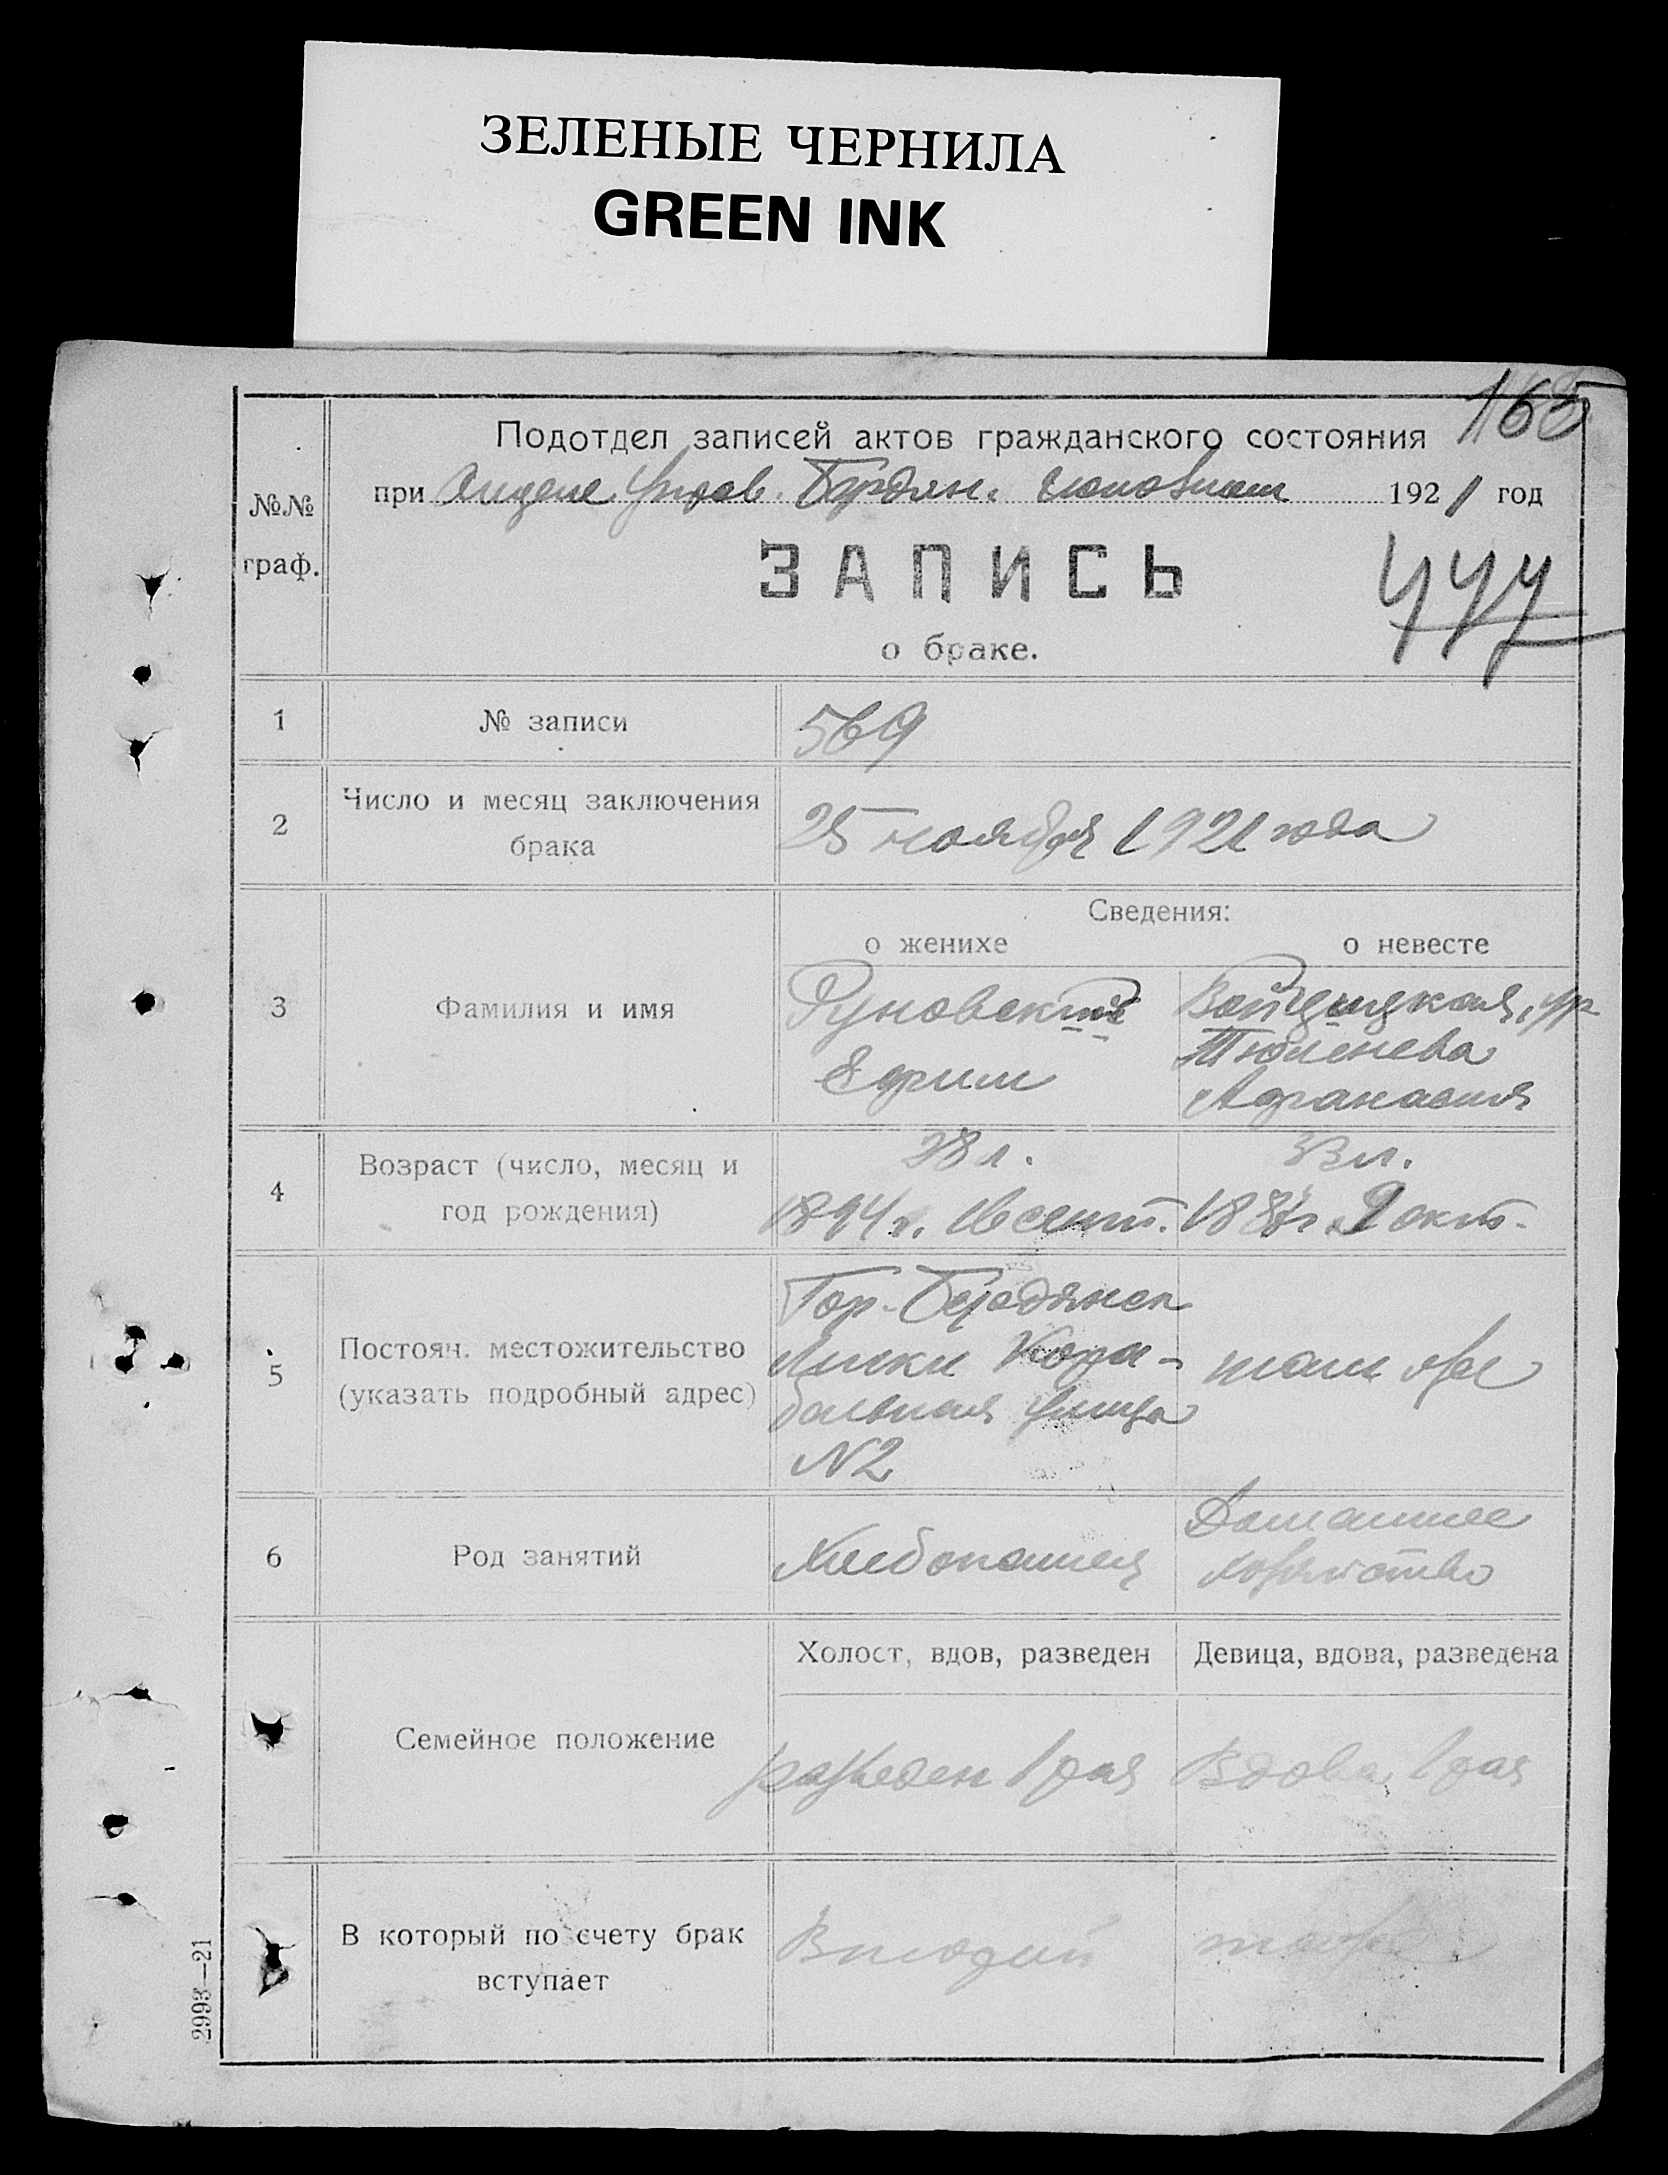 ЗЕЛЕНЫЕ ЧЕРНИЛА
GREEN INK
165
Подотдел записей актов гражданского состояния
при Отделе Управ. Бердян. исполкома 1921 год
№№
граф.
ЗАПИСЬ
о браке.
1
№ записи
569
2
Число и месяц заключения
брака
25 ноября 1921 года
Сведения:
о женихе
о невесте
3
Фамилия и имя
Руновский
Ефим
Войцицкая, ур.
Тюленева
Афанасия
4
Возраст (число, месяц и
год рождения)
28 л.
1894 г. 16 сент.
33 л.
9 окт.
5
Постоян. местожительство
(указать подробный адрес)
Гор. Бердянск
Лиски Кора-
бельная улица
N2
там же
6
Род занятий
Хлебопашец
Домашнее
хозяйство
Семейное положение
Холост, вдов, разведен
Девица, вдова, разведена
разведен 1 раз
Вдова 1 раз
В который по счету брак
вступает
Второй
тоже
2993—21